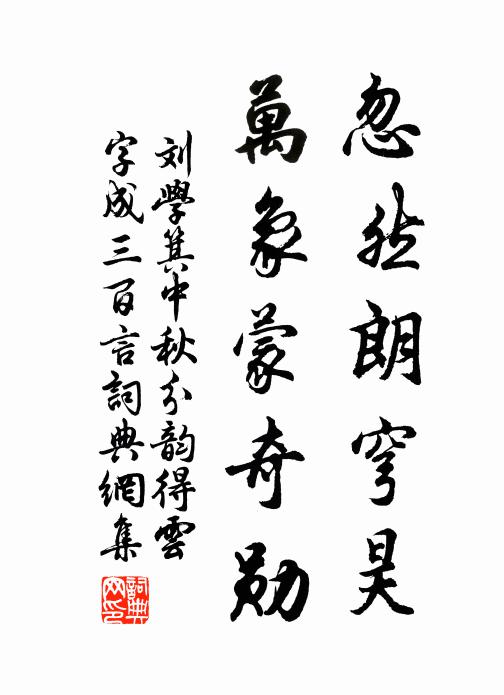 忽然朗穹昊
萬象蒙奇勋
刘學箕中秋分韵得雲
字成三百言詞典網集
詞典网印